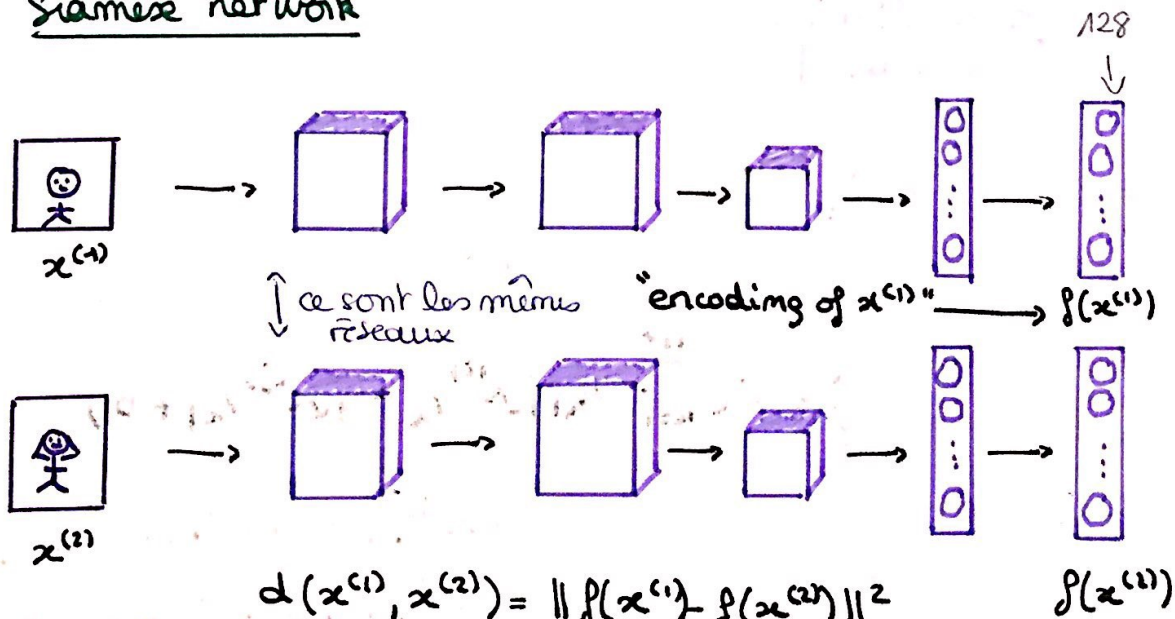 Siamese network
128
x^(1)
ce sont les mêmes
réseaux
"encoding of x^(1)" f(x^(1))
x^(2)
d(x^(1), x^(2)) = || f(x^(1)) - f(x^(2)) ||²
f(x^(2))